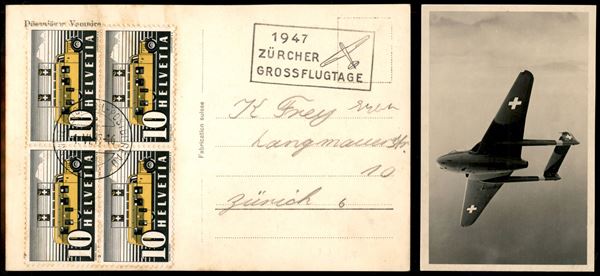 Düsenjäger Vampire
HELVETIA
10
HELVETIA
10
HELVETIA
10
HELVETIA
10
1947
ZÜRCHER
GROSSFLUGTAGE
Fabrication suisse
K Frey
Langmauerstr.
10
Zürich 6